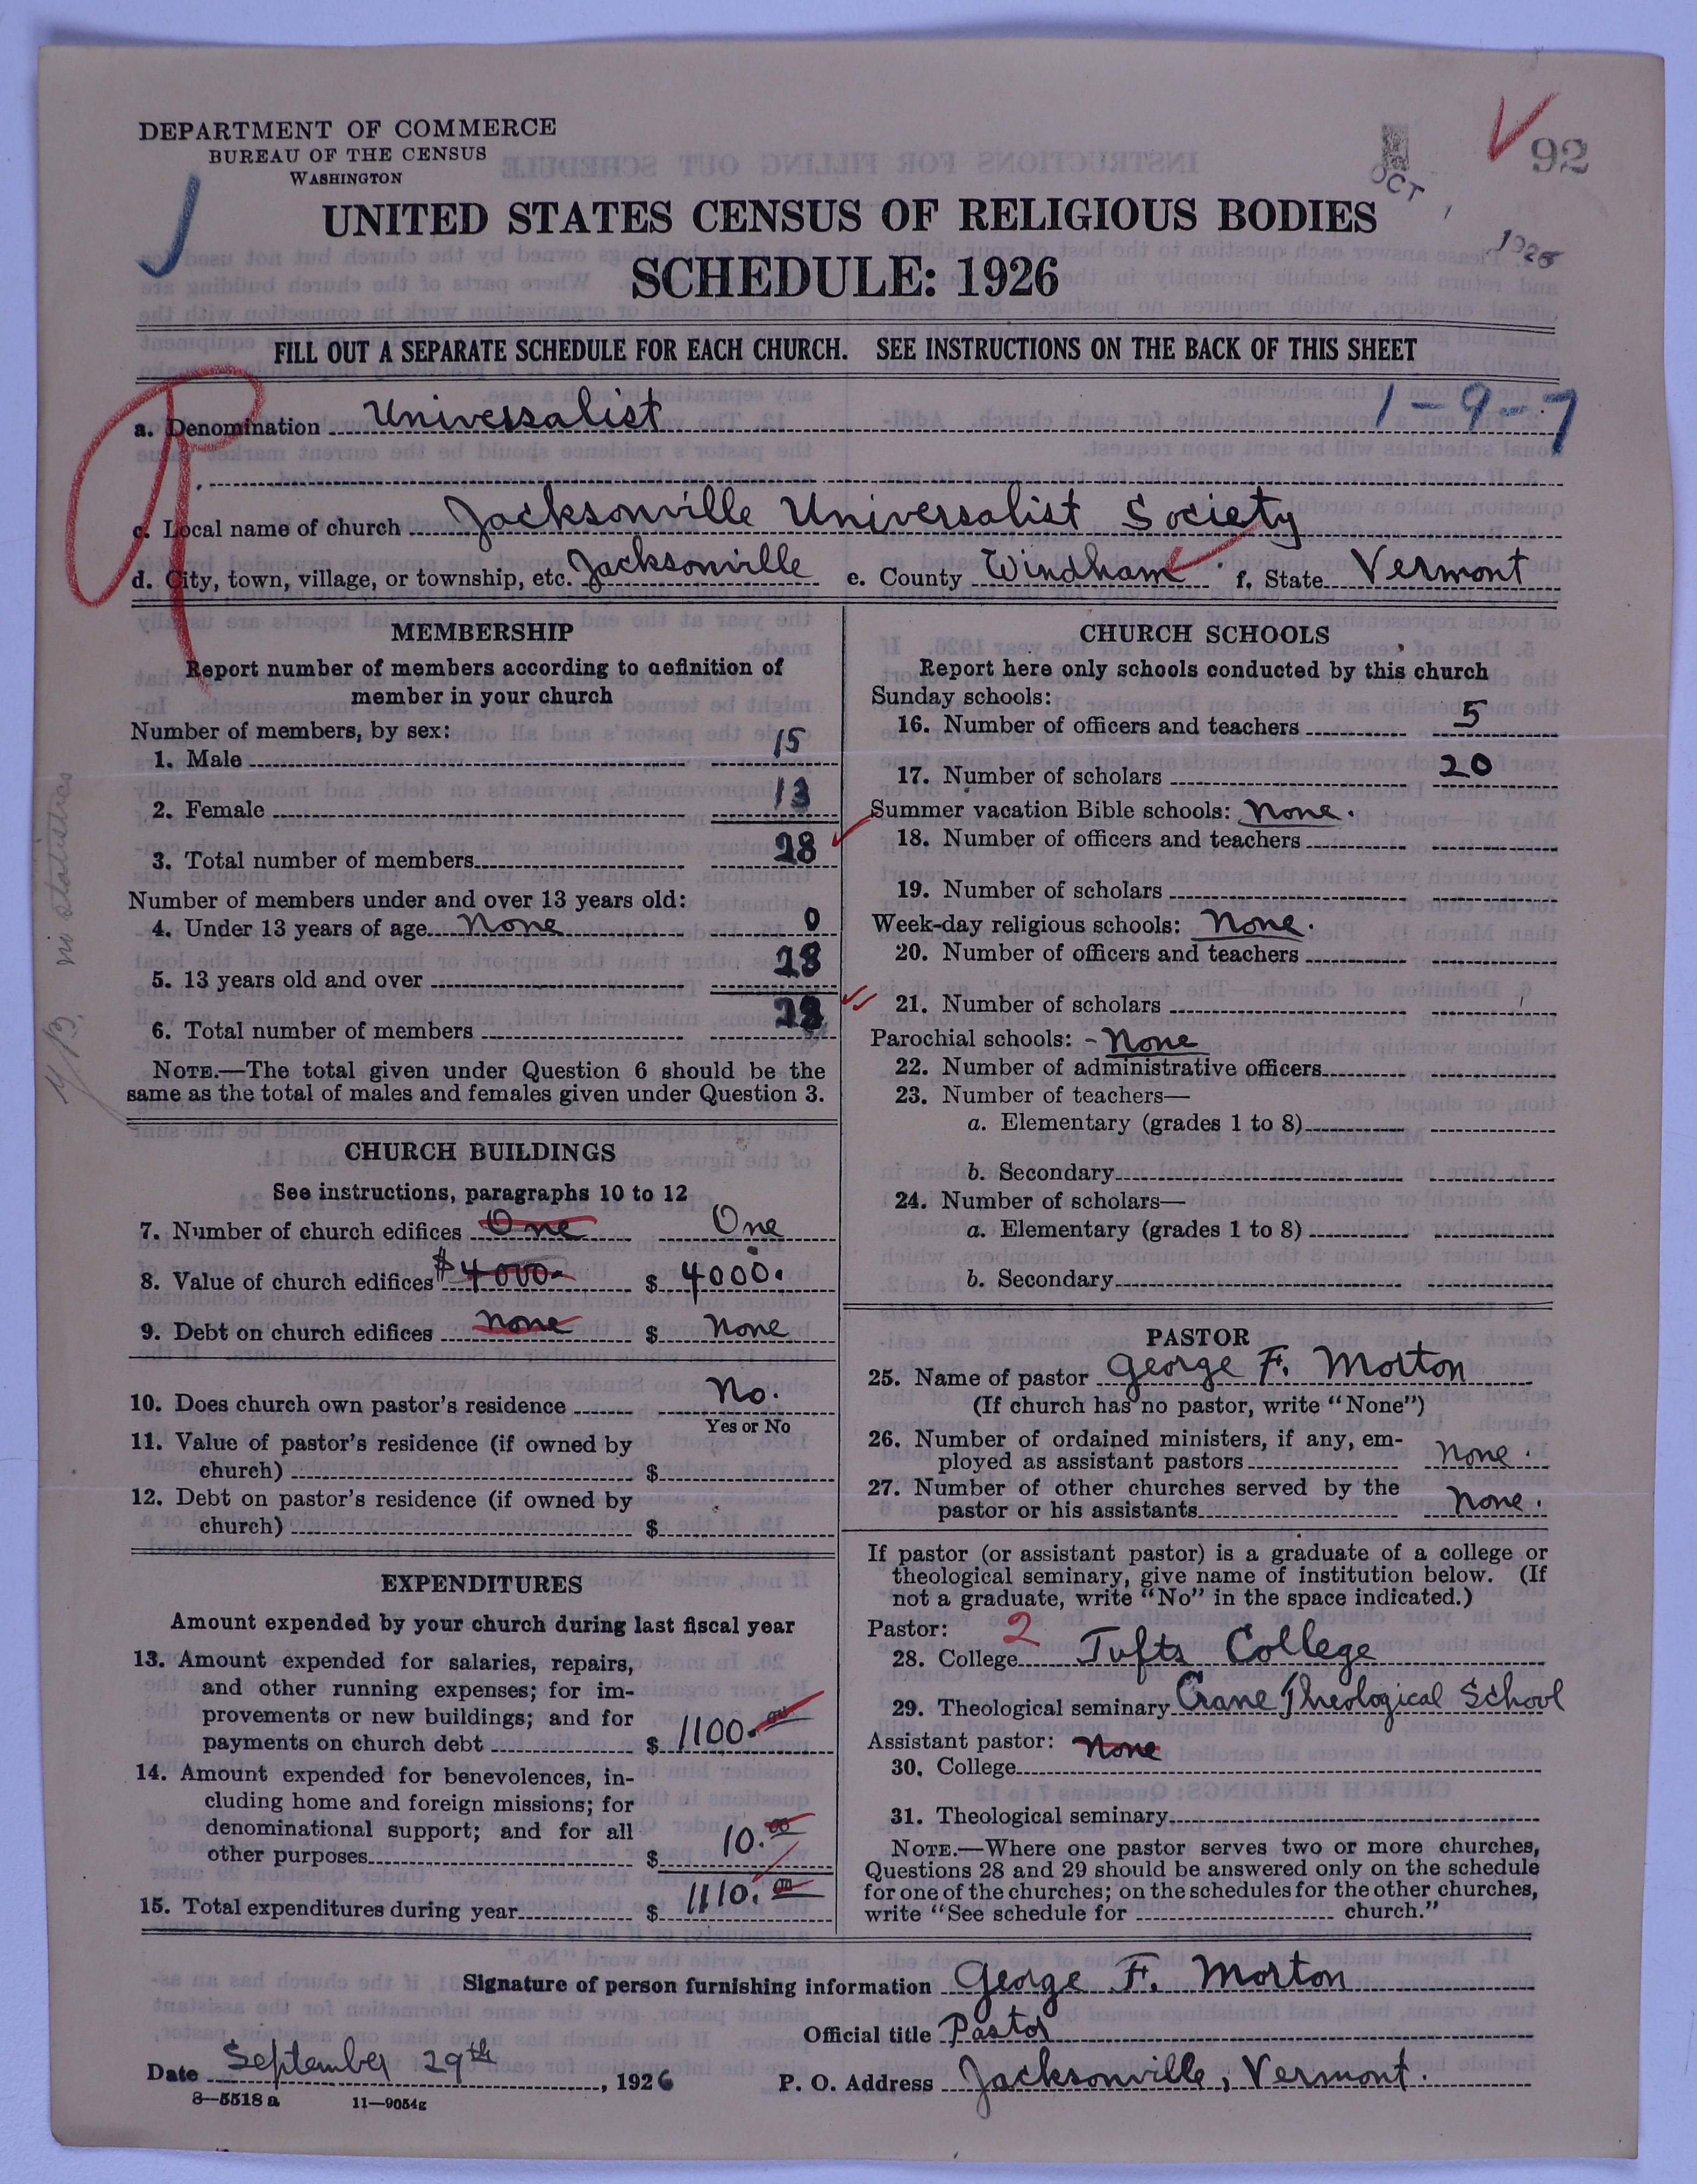 DEPARTMENT OF COMMERCE
BUREAU OF THE CENSUS
WASHINGTON
92
OCT 1 1926
UNITED STATES CENSUS OF RELIGIOUS BODIES
SCHEDULE: 1926
FILL OUT A SEPARATE SCHEDULE FOR EACH CHURCH. SEE INSTRUCTIONS ON THE BACK OF THIS SHEET
1-9-7
a. Denomination Universalist
c. Local name of church Jacksonville Universalist Society
d. City, town, village, or township, etc. Jacksonville e. County Windham f. State Vermont
MEMBERSHIP
Report number of members according to definition of
member in your church
Number of members, by sex:
1. Male 15
2. Female 13
3. Total number of members 28
Number of members under and over 13 years old:
4. Under 13 years of age None 0
5. 13 years old and over 28
6. Total number of members 28
NOTE.—The total given under Question 6 should be the
same as the total of males and females given under Question 3.
no statistics
CHURCH BUILDINGS
See instructions, paragraphs 10 to 12
7. Number of church edifices One One
8. Value of church edifices $4000. $ 4000.
9. Debt on church edifices none $ none
10. Does church own pastor's residence No.
Yes or No
11. Value of pastor's residence (if owned by
church) $
12. Debt on pastor's residence (if owned by
church) $
EXPENDITURES
Amount expended by your church during last fiscal year
13. Amount expended for salaries, repairs,
and other running expenses; for im-
provements or new buildings; and for
payments on church debt $ 1100.00
14. Amount expended for benevolences, in-
cluding home and foreign missions; for
denominational support; and for all
other purposes $ 10.00
15. Total expenditures during year $ 1110.00
CHURCH SCHOOLS
Report here only schools conducted by this church
Sunday schools:
16. Number of officers and teachers 5
17. Number of scholars 20
Summer vacation Bible schools: None.
18. Number of officers and teachers
19. Number of scholars
Week-day religious schools: None.
20. Number of officers and teachers
21. Number of scholars
Parochial schools: - None
22. Number of administrative officers
23. Number of teachers—
a. Elementary (grades 1 to 8)
b. Secondary
24. Number of scholars—
a. Elementary (grades 1 to 8)
b. Secondary
PASTOR
25. Name of pastor George F. Morton
(If church has no pastor, write "None")
26. Number of ordained ministers, if any, em-
ployed as assistant pastors none.
27. Number of other churches served by the
pastor or his assistants none.
If pastor (or assistant pastor) is a graduate of a college or
theological seminary, give name of institution below. (If
not a graduate, write "No" in the space indicated.)
Pastor: 2
28. College Tufts College
29. Theological seminary Crane Theological School
Assistant pastor: None
30. College
31. Theological seminary
NOTE.—Where one pastor serves two or more churches,
Questions 28 and 29 should be answered only on the schedule
for one of the churches; on the schedules for the other churches,
write "See schedule for church."
Signature of person furnishing information George F. Morton
Official title Pastor
Date September 29th, 1926 P. O. Address Jacksonville, Vermont.
8—5518 a 11—9054g